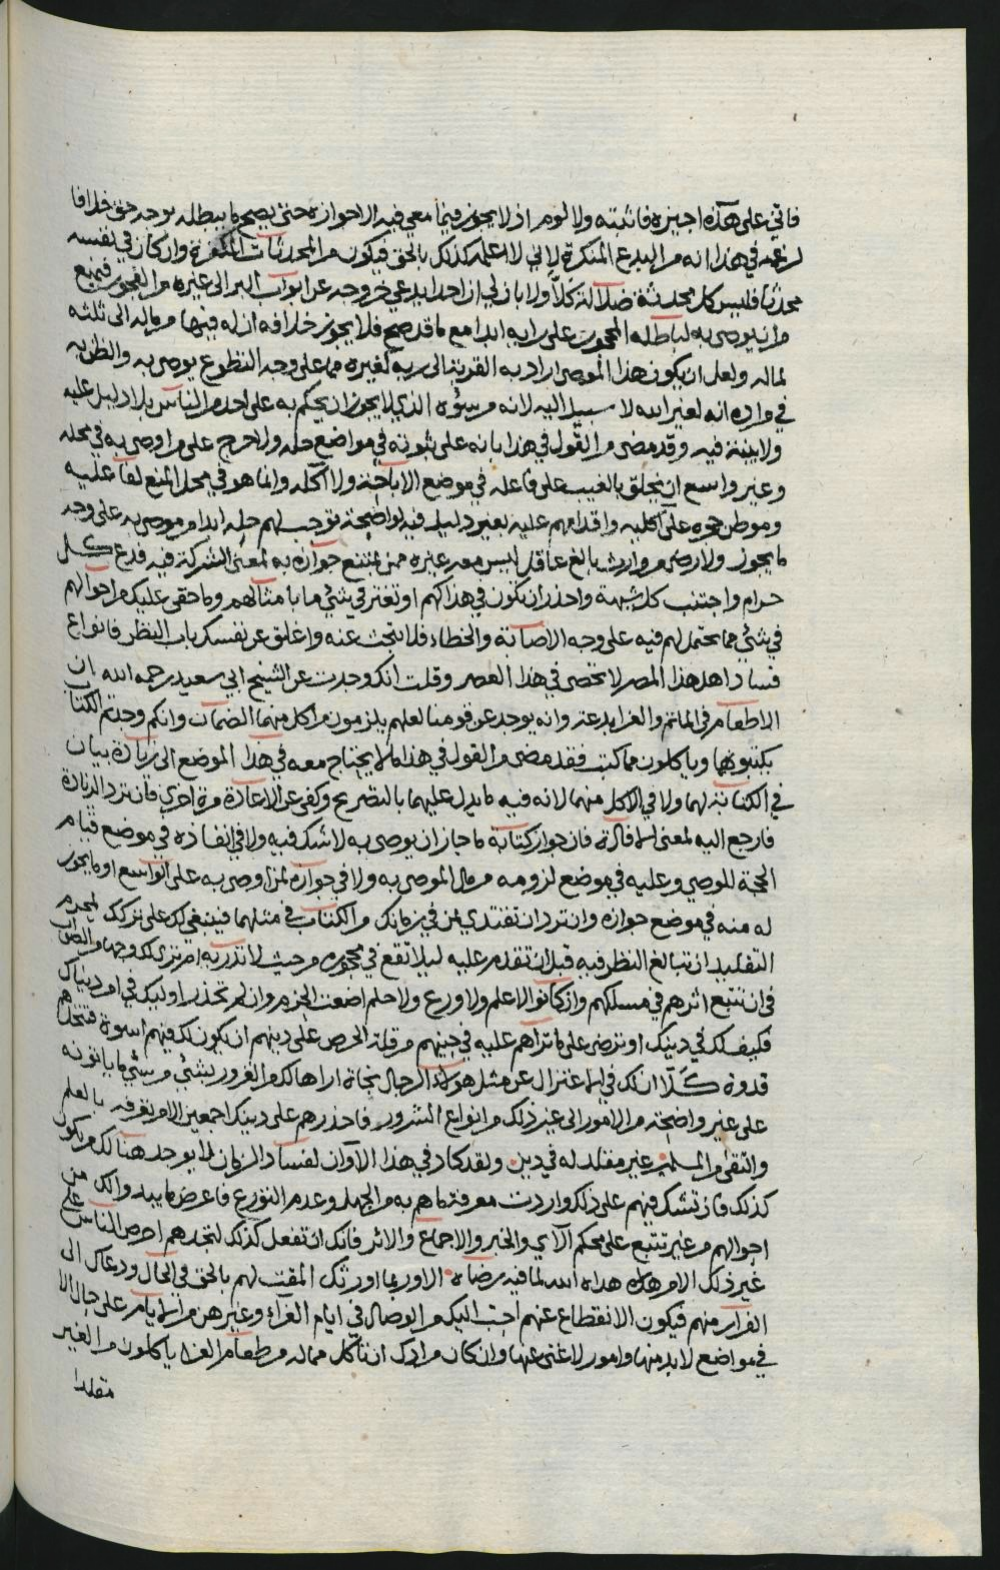 فاني على هذه اجيزه فاثبته ولا لوم اذ لا يجوز فيما معي فيه الا جوازه حتى يصح ما يبطله بوجه حق خلافا
لزعمه في هذا انه من البدع المنكرة لاني لا اعلمه كذلك بالحق فيكون من المحدثات المكفرة وان كان في نفسه
محدثا فليس كل محدثة ضلالة كلا ولا بان لي ان احدا يدعي خروجه عن ابواب البر الى غيره من الفجور فيمنع
من ان يوصى به لباطله المحجور على رايه ابدا مع ما قد صح فلا يجوز خلافه ان له فيها من ماله الى ثلثه
لماله ولعل ان يكون هذا الموصي اراد به القربة الى ربه لغيره مما على وجه التطوع يوصى به والظن به
في مراده انه لغير الله لا سبيل اليه لانه من سؤه الذي لا يجوز ان يحكم به على احد من الناس بلا دليل عليه
ولا بينة فيه وقد مضى من القول في هذا بانه على ثبوته في مواضع حله ولا حرج على من اوصى به في محله
وغير واسع ان يحلق بالغيب على فاعله في موضع الاباحة ولا آكله وانما هو في محل المنع لفاعليه
وموطن حجره على آكليه واقدامهم عليه بغير دليل فيه لواضحة توجب لهم حله ابدا من موصى به على وجه
ما يجوز ولا رضى من وارث بالغ عاقل ليس معه غيره ممن يمتنع جوازه به لمعنى الشركة فيه فدع كل
حرام واجتنب كل شبهة واحذر ان تكون في هذا كهم او تغتر في شيء ما بامثالهم وما خفي عليك من احوالهم
في شيء مما يحتمل لهم فيه على وجه الاصابة والخطاء فلا تبحث عنه واغلق عن نفسك باب النظر فانواع
فساد اهل هذا المصر لا تحصى في هذا العصر وقلت انك وجدت عن الشيخ ابي سعيد رحمه الله ان
الاطعام في الماتم والعزا بدعة وانه يوجد عن قومنا لعلهم يلزمون من اكل منهما الضمان وانكم وجدتم الكتاب
يكتبونهما وياكلون مما كتب فقد مضى من القول في هذا ما لا يحتاج معه في هذا الموضع الى زيادة بيان
في الكتابة لهما ولا في الاكل منهما لانه فيه ما يدل عليهما بالتصريح وكفى عن الاعادة مرة اخرى فان ترد الزيادة
فارجع اليه لمعنى استفادة فان جواز كتابة ما جاز ان يوصى به لا شك فيه ولا في انفاذه في موضع قيام
الحجة للوصي وعليه في موضع لزومه من مال الموصي به ولا في جوازه لمن اوصى به على الواسع او ما يجوز
له منه في موضع جوازه وان ترد ان تقتدي بمن في زمانك من الكتاب في مثلهما فينبغي لك على تركك لمحرم
التقليد ان تبالغ النظر فيه قبل ان تقدم عليه ليلا تقع في محجوره من حيث لا تدري به ام ترى لك وجها من الصواب
في ان تتبع اثرهم في مسلكهم وان كانوا لا علم ولا ورع ولا حلم اضعت الحزم وان لم تحذر اوليك في امر دنياك
فكيف لك في دينك او ترضى على ما تراهم عليه في حبهم من قلة الحرص على دينهم ان يكون لك فيهم اسوة فتتخذهم
قدوة كلا ان لك في الاعتزال عن مثل هولاء الرجال نجاة اراها لك من الغرور بشيء من سيئ ما ياتونه
على غير واضحة من الامور الى غير ذلك من انواع الشرور فاحذرهم على دينك اجمعين الا من تعرفه بالعلم
والتقى من المسلمين غير مقلد له في دين ولقد كاد في هذا الآوان لفساد الزمان لا يوجد هنالك من يكون
كذلك فان تشك فيهم على ذلك واردت معرفة ما هم به من الجهل وعدم التورع فاعرض ما يبدو لك من
احوالهم من غير تتبع على محكم الآي والخبر والاجماع والاثر فانك ان تفعل كذلك لتجدهم احرص الناس على
غير ذلك الا من هداه الله لما فيه رضاه الا وربما اورثك المقت لهم بالحق في الحال ودعاك الى
الفرار منهم فيكون الانقطاع عنهم احب اليك من الوصال في ايام العزاء وغيرهن من الايام على حال الا
في مواضع لا بد منها وامور لا غنى عنها وان كان مرادك ان تاكل مما له من طعام العزا ياكلون من الغير
مقلدا